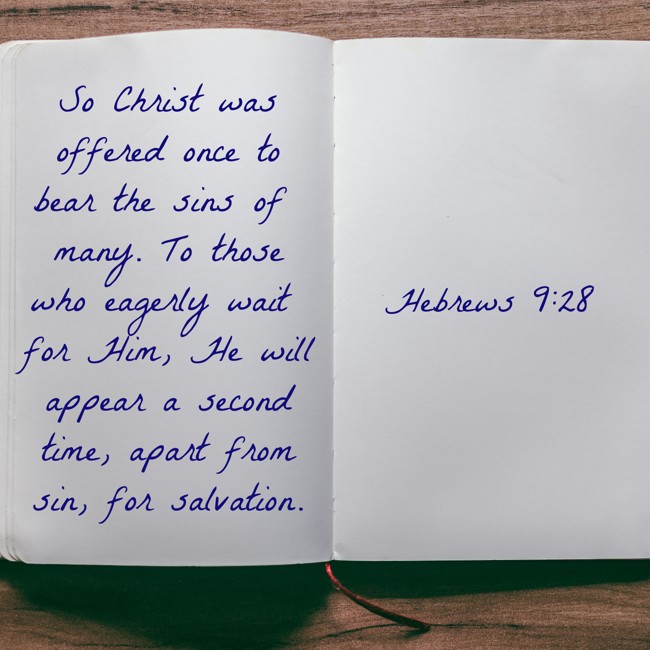 So Christ was
offered once to
bear the sins of
many. To those
who eagerly wait
for Him, He will
appear a second
time, apart from
sin, for salvation.
Hebrews 9:28